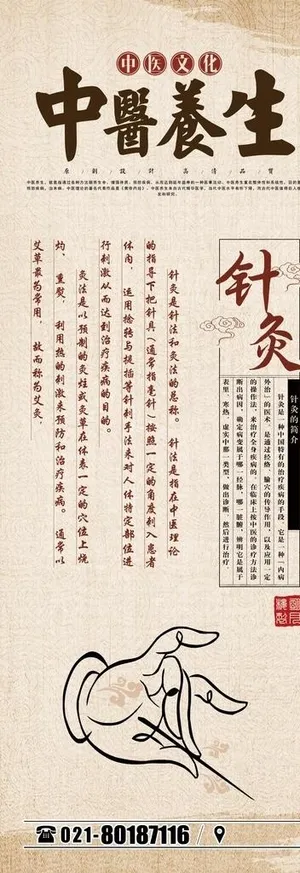 中医文化
中醫養生
原创設計高清品質
针灸
针灸的简介
针灸是一种中国特有的治疗疾病的手段。它是一种“内病
外治”的医术。是通过经络、腧穴的传导作用，以及应用一定
的操作法，来治疗全身疾病的。在临床上按中医的诊疗方法诊
断出病因，确定病变属于哪一经脉，哪一脏腑，辨明它是属于
表里、寒热、虚实中那一类型，做出诊断，然后进行治疗，
针灸是针法和灸法的总称。针法是指在中医理论
的指导下把针具（通常指毫针）按照一定的角度刺入患者
体内，运用捻转与提插等针刺手法来对人体特定部位进
行刺激从而达到治疗疾病的目的。
灸法是以预制的灸炷或灸草在体表一定的穴位上烧
灼、熏熨，利用热的刺激来预防和治疗疾病。通常以
艾草最为常用，故而称为艾灸，
021-80187116 /